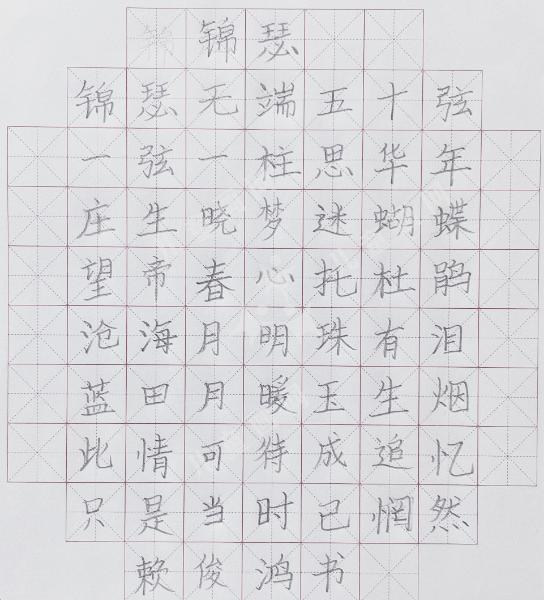 锦瑟
锦瑟无端五十弦
一弦一柱思华年
庄生晓梦迷蝴蝶
望帝春心托杜鹃
沧海月明珠有泪
蓝田月暖玉生烟
此情可待成追忆
只是当时已惘然
赖俊鸿书